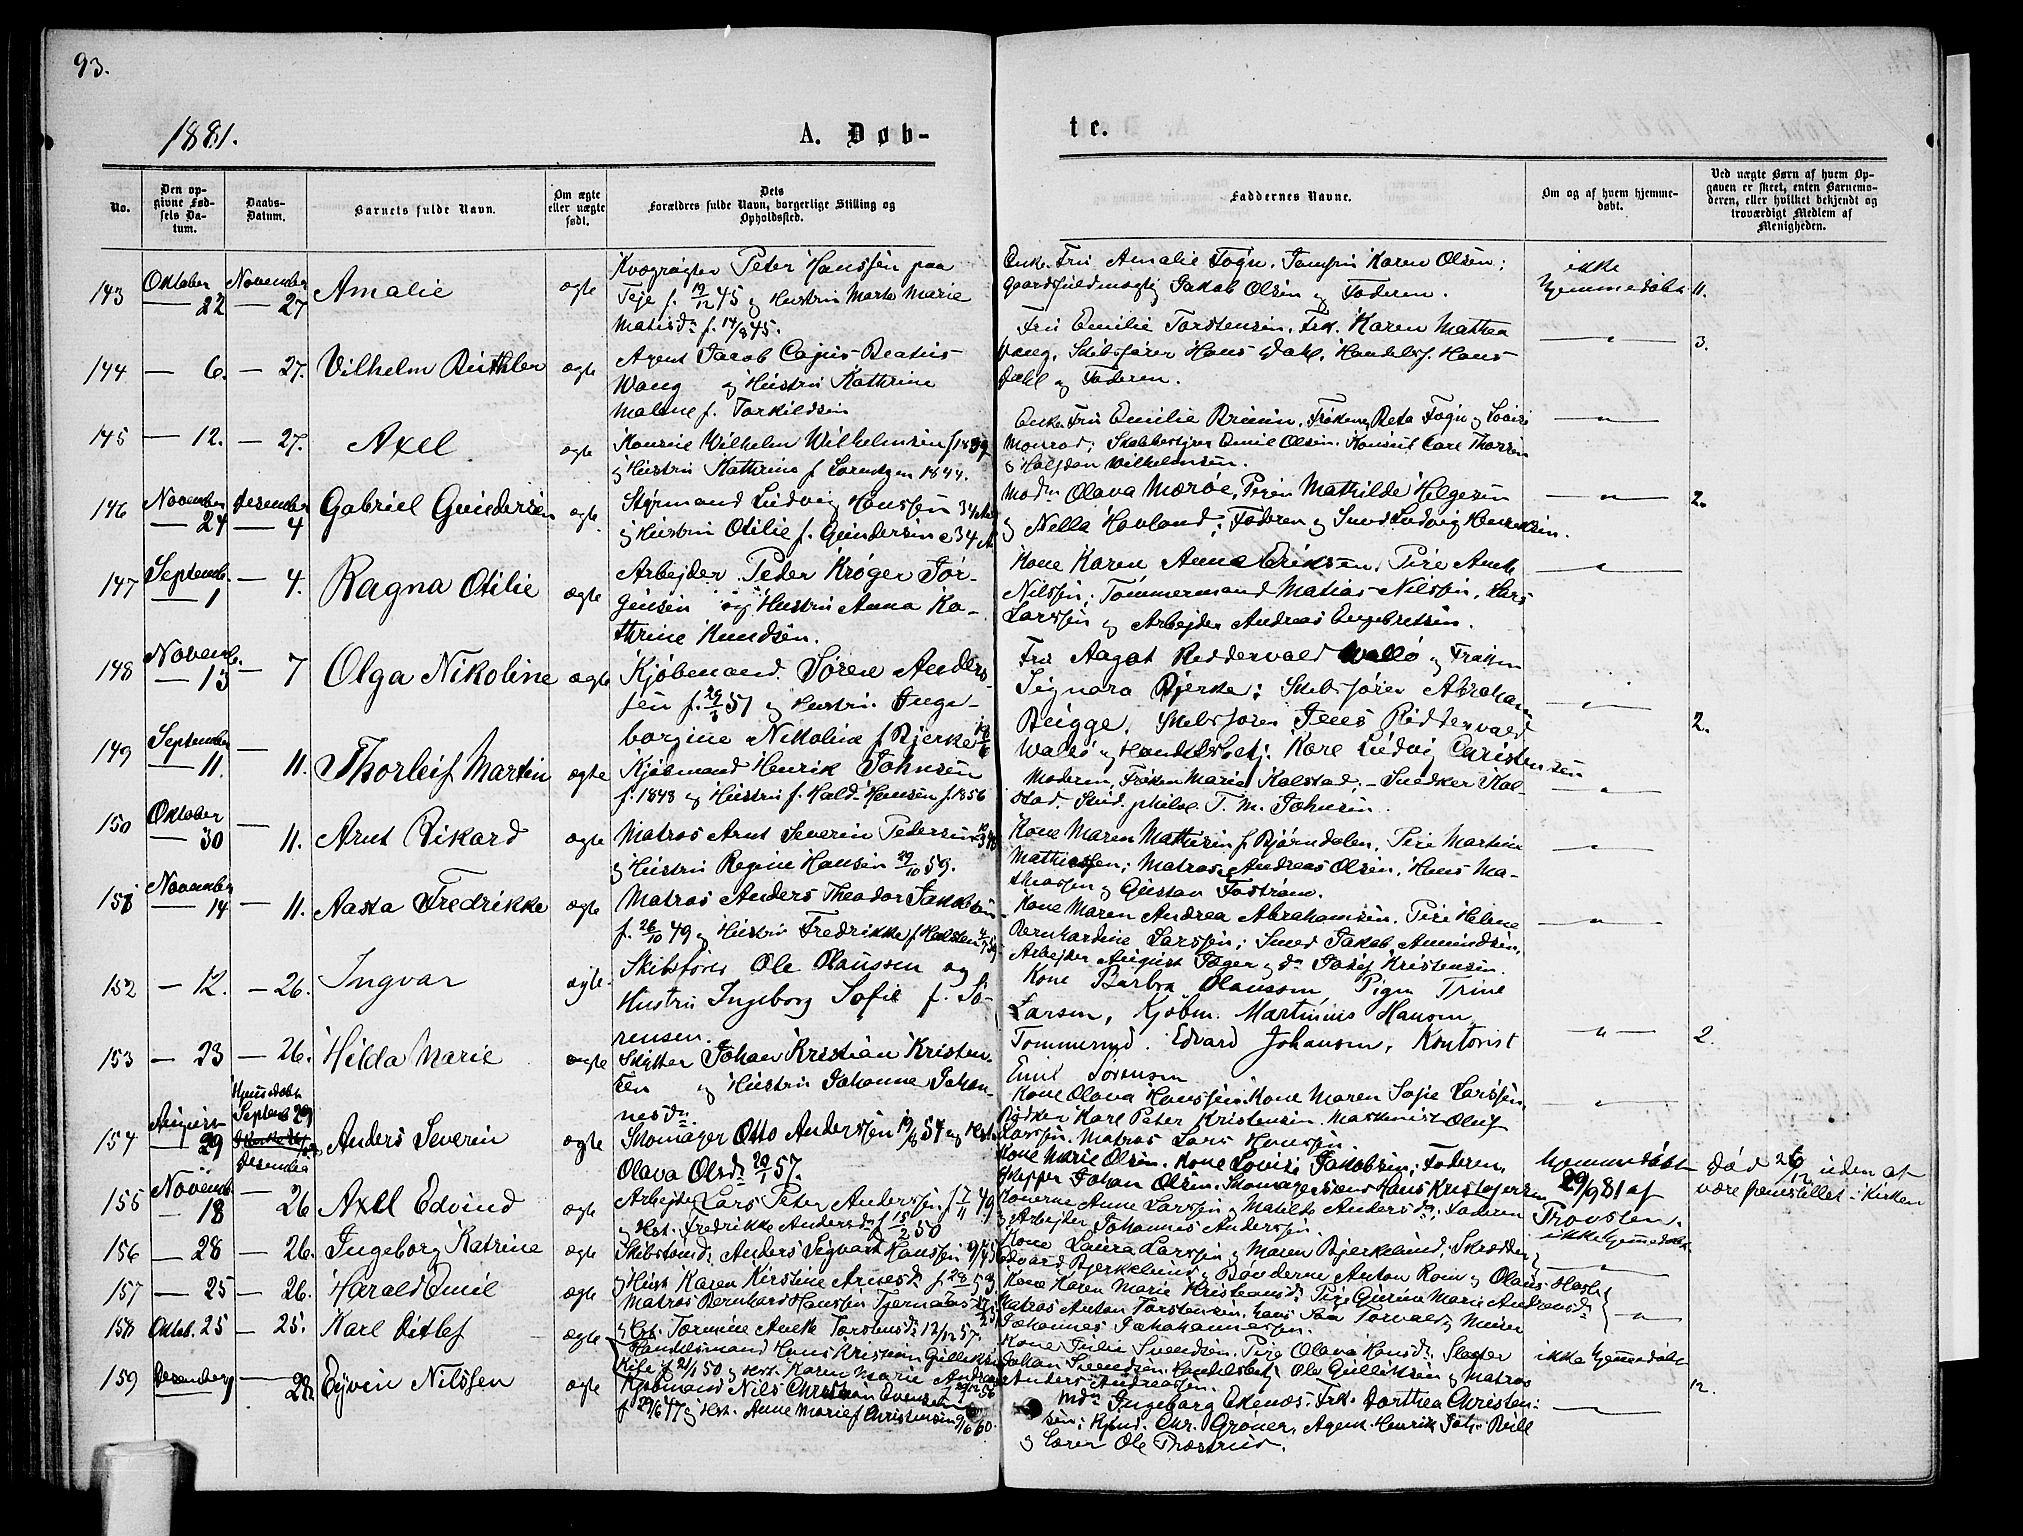 93.
1881.
A. Døb-
te.
No.
Den op-
givne Fød-
sels Da-
tum.
Daabs-
Datum.
Barnets fulde Navn.
Om ægte
eller uægte
født.
Dets
Forældres fulde Navn, borgerlige Stilling og
Opholdssted.
Faddernes Navne.
Om og af hvem hjemme-
døbt.
Ved uægte Børn af hvem Op-
gaven er skeet, enten Barnemo-
deren, eller hvilket bekjendt og
troværdigt Medlem af
Menigheden.
143 Oktober 22 November 27 Amalie ægte
Kvægrøgter Peter Hanssen paa
Teje f. 19/12 45 og Hustru Marte Marie
Matisdr f. 14/8 45.
Enke Fru Amalie Fogn, Jomfru Karen Olsen;
Gaardsfuldmægtig Jakob Olsen og Faderen.
ikke
hjemmedøbt
11.
144 — 6. — 27. Vilhelm ægte
Agent Jacob Cajus Beatus
Wang og Hustru Kathrine
Malene f. Torkildsen
Fru Emilie Torstensen, Frk. Karen Mathea
Wang, Skibsfører Hans Dahl, Handelsf. Hans
Dahl og Faderen.
— " —
3.
145 — 12. — 27. Axel ægte
Wilhelm Wilhelmsen f 1839
og Hustru Kathrine f Lorentzen 1844.
Enke Fru Emilie Bruun, Frøken Beta Fogn og Lovise
Monrad; Skibbestyrer Emil Olsen, Konsul Carl Thorsen
og Halfdan Wilhelmsen.
— " —
146 November 24 Desember 4 Gabriel Gundersen ægte
Styrmand Ludvig Hanssen 34
og Hustru Otilie f. Gundersen 34
Mdm Olava Marøe, Pigen Mathilde Helgesen
og Nella Hovland; Faderen og Smed Ludvig Henriksen.
— " —
2.
147 Septemb. 1 — 4. Ragna Otilie ægte
Arbejder Peder Krøger Jør-
gensen og Hustru Anna Ka-
thrine Knudsen.
Kone Karen Anne Eriksen, Pige Anne
Nilssen, Tømmermand Matias Nilssen, Lars
Larssen og Arbejder Andreas Engebretsen.
— " —
148 Novemb. 13 — 7 Olga Nikoline ægte
Kjøbmand Søren Anders-
sen f. 29/3 57 og Hustru Inge-
borgine Nikoline f Bjerke
Fru Aagot Reddervald Wallø og Frøken
Signara Bjerke; Skibsfører Abraham
Bugge, Skibsfører Jens Riddervald
Wallø og Handelsbetj. Karl Ludvig Christensen
— " —
2.
149 September 11. — 11. Thorleif Martin ægte
Kjøbmand Henrik Johnsen
f. 1848 og Hustru f. Hald Hansen f. 1856
Moderen, Frøken Maria Kalstad; Snedker Kal-
stad, Stud. philol T. M. Johnsen.
— " —
150 Oktober 30 — 11. Arnt Rikard ægte
Matros Arnt Severin Pedersen
og Hustru Regine Hansen 29/10 59.
Kone Maren Mathisen f Bjørndalen, Pige Martine
Mathiassen; Matros Andreas Olsen, Hans Ma-
thiassen og Gustav Fostrøm.
— " —
151 November 14 — 11. Aasta Fredrikke ægte
Matros Anders Theodor Jakobsen
f. 26/10 49 og Hustru Fredrikke f Halsten
Kone Maren Andrea Abrahamsen, Pige Helene
Bernhardine Larssen; Smed Jakob Amundsen,
Arbejder August Jæger og do Josef Kristensen.
— " —
152 — 12. — 26. Ingvar ægte.
Skibsfører Ole Olaussen og
Hustru Ingeborg Sofie f. Sø-
rensen.
Kone Barbra Olaussen Pigen Trine
Larsen, Kjøbm. Martinius Hansen
Tommerud, Edvard Johansen, Kontorist
Emil Sørensen
— " —
2.
153 — 23 — 26. Hilda Marie ægte
Skytter Johan Kristian Kristen-
sen og Hustru Johanne Johan-
nesdr
Kone Olava Hanssen, Kone Maren Sofie Larssen,
Bødker Karl Peter Kristensen, Maskinist Oluf
Larssen, Matros Lars Hanssen.
— " —
154 August 29 Hjemmedøbt Septemb 29 Desember Anders Severin ægte
Skomager Otto Anderssen 54 og Hst.
Olava Olsdr 20/1 57.
Kone Marie Olsen, Kone Lovise Jakobsen; Faderen,
Johan Olsen, Skomagersvend Hans Kristofersen
Hjemmedøbt
29/9 81 af
Provsten.
Død 26/12 uden at
være fremstillet i Kirken
155 Novemb. 18 — 26 Axel Edvind ægte
Arbejder Lars Peter Anderssen f 7/11 49
og Hst. Fredrikke Andersdr f 15/2 50
Konerne Anne Larssen og Matilde Andersdr; Faderen
og Arbejder Johannes Anderssen.
ikke hjemmedøbt
156 — 28 — 26. Ingeborg Katrine ægte
Skibstømm. Anders Sigvart Hanssen
og Hust Karen Kirstine Arnesdr f 28/
Kone Laura Larssen og Maren Bjerkelund; Skrædder
Edvard Bjerkelund og Bønderne Anton Rom og Olaus Hasle
— " —
157 — 25 — 26. Harald Emil ægte
Matros Bernhard Hanssen Tjernaas
og Hst. Tormine Anette Torstensdr 12/12 57.
Kone Karen Marie Kristiansdr Pige Gurine Marie Andreasdr
Matros Anton Torstensen, Torvald og Meier
Johannes Johannessen.
— " —
158 Oktob. 25 — 25. Karl Ditlef ægte
Handelsmand Hans Kristian Gulliksen
f 21/1 50 og Hst. Karen Marie Andreas
Kone Julie Svendsen, Pige Olava Hansdr Slagter
Johan Svendsen, Handelsbetj. Ole Gulliksen og Matros
Anders Andreassen.
ikke hjemmedøbt
159 Desember 1 — 28. Eyvin Nilssen ægte
Kjøbmand Nils Christian Evensen
f 29/6 47 og Hst. Anne Marie f Christensen 9/6 60.
Mdm Ingeborg Ekenæs, Frk. Dorthea Christen-
sen; Kjbmd. Chr. Grøner, Agent Henrik Joh. Bull
og Lærer Ole Thostrud.
— " —
12.